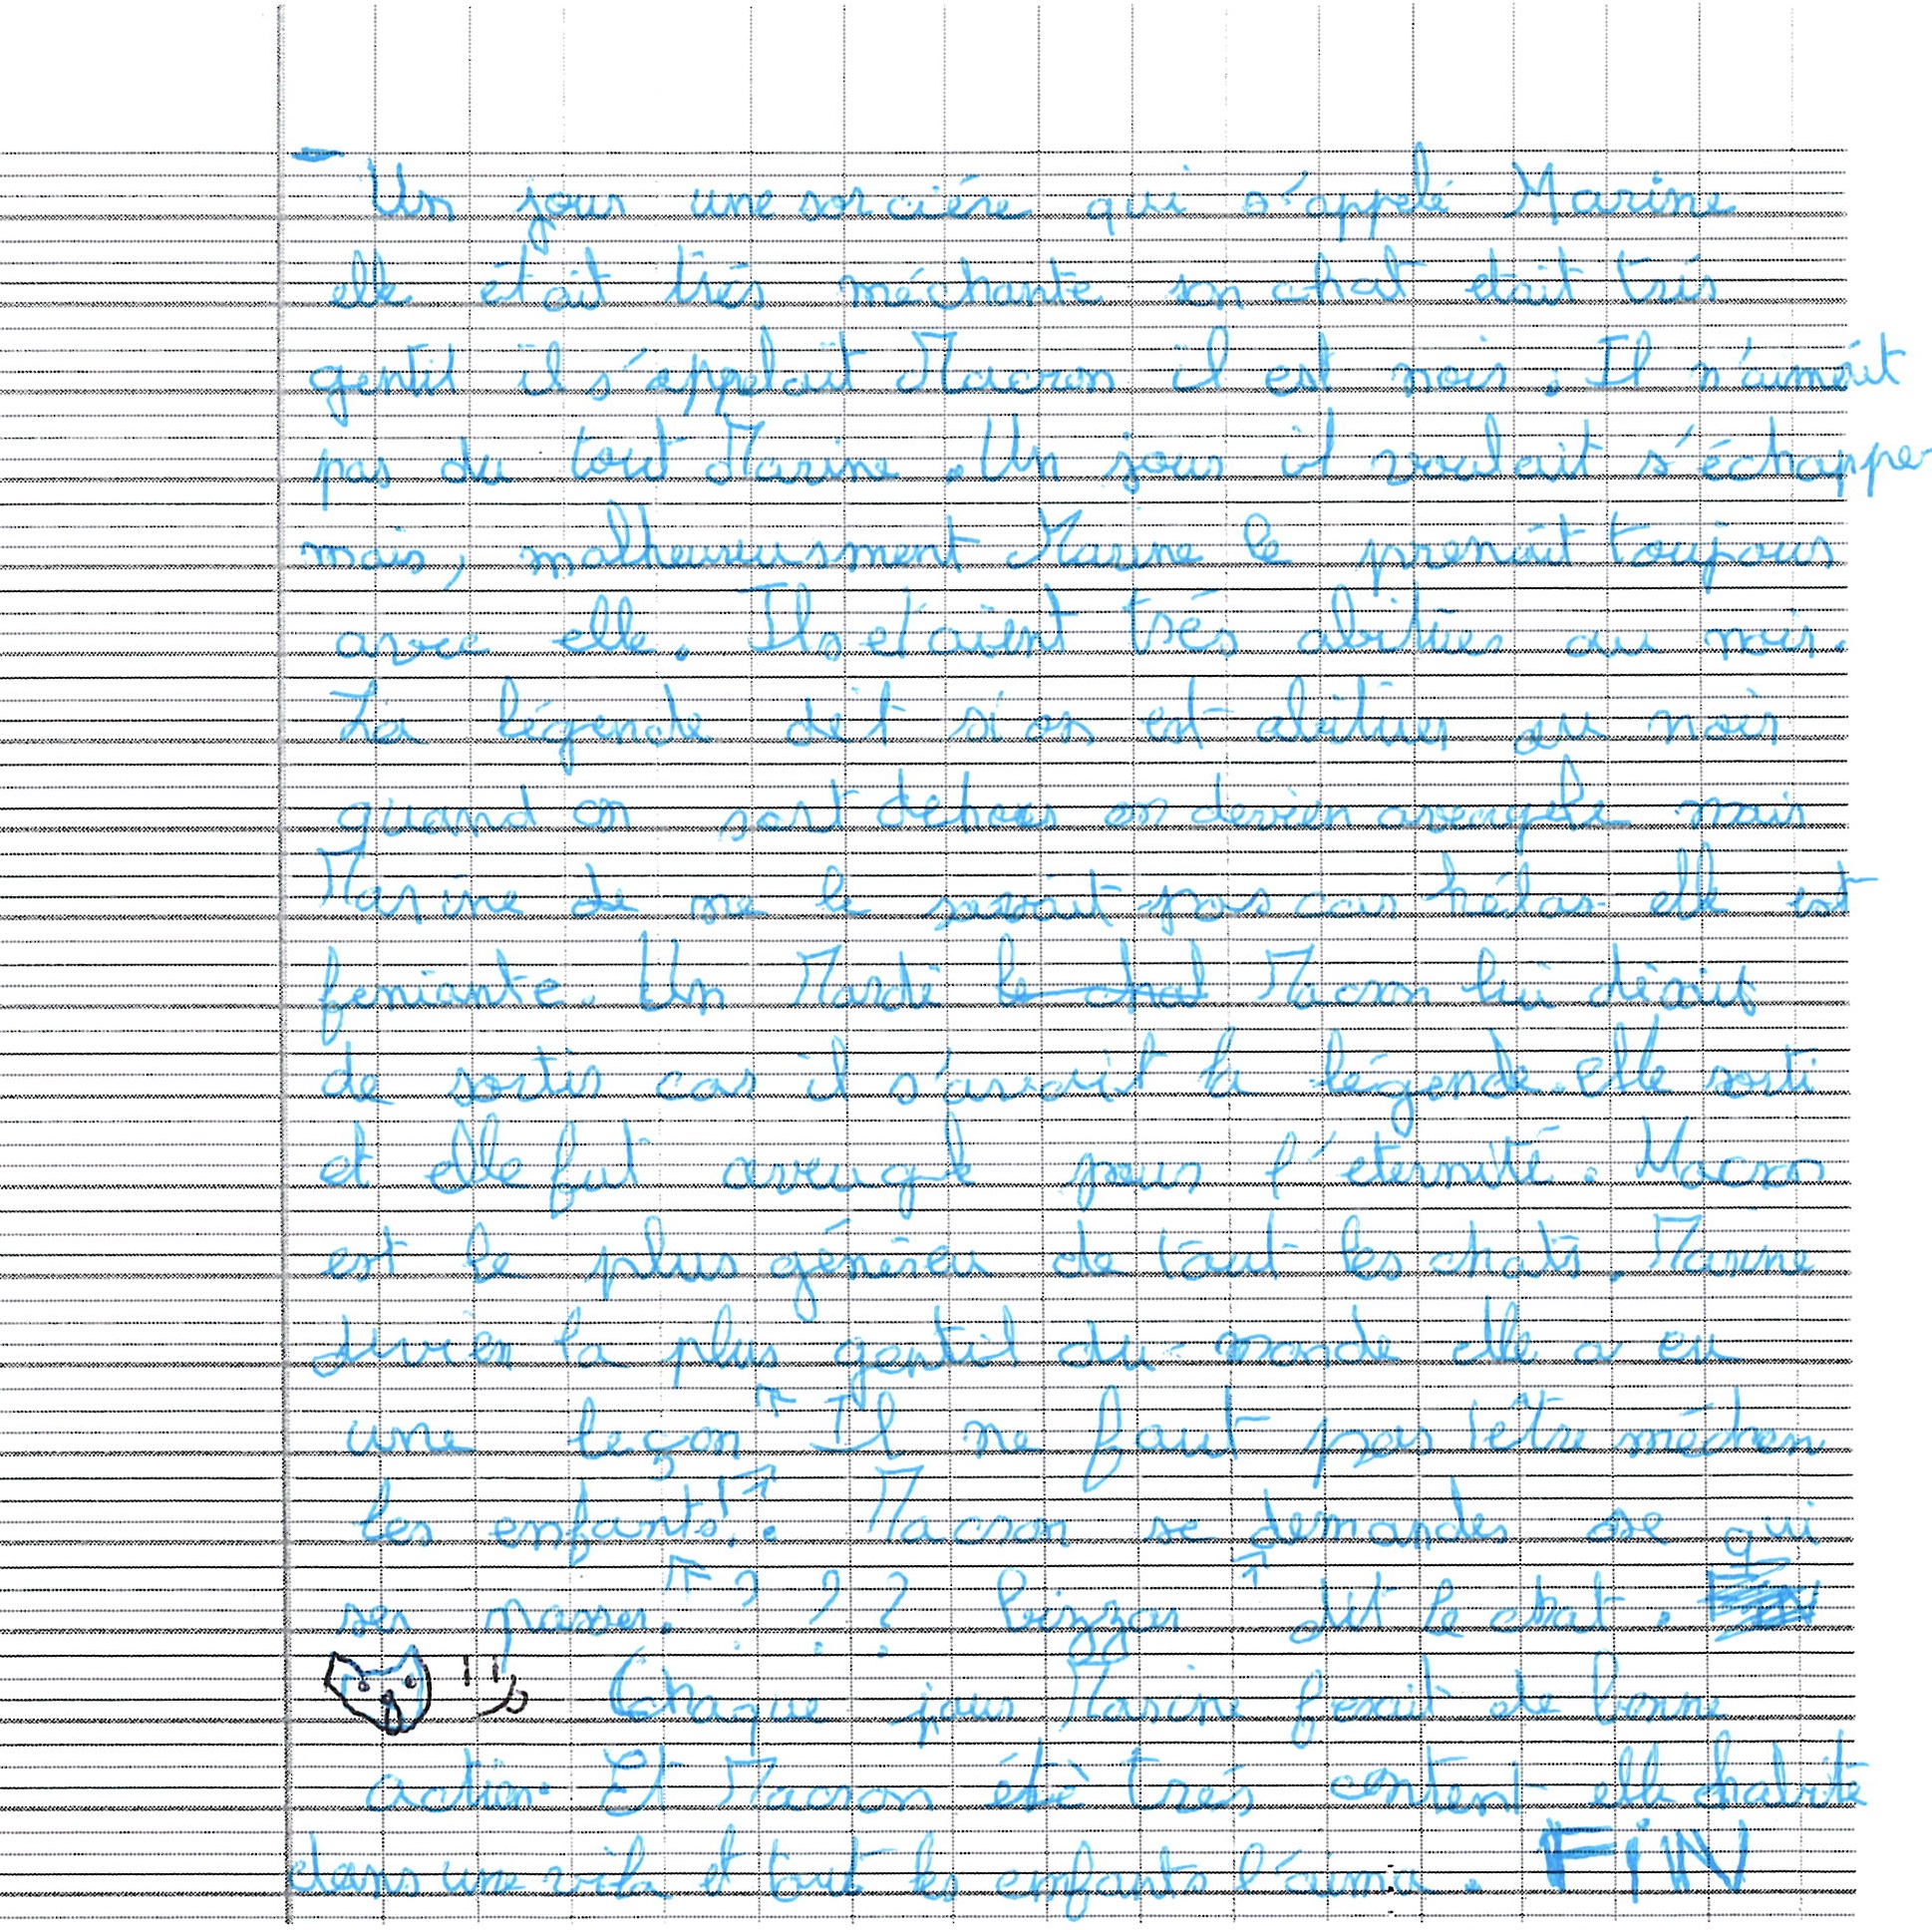 Un jour une sorciére qui s'appelé Marine
elle était trés méchante son chat etait trés
gentil il s'appelait Macron il est noir. Il n'aimait
pas du tout Marine. Un jour il voulait s'échapper
mais, malheureusment Marine le prenait toujours
avec elle. Ils etaient trés abitues au noir.
La légende dit si on est abituer au noir
quand on sort dehors on devien aveugle mais
Marine de ne le savait pas car hélas elle est
feniante. Un Mardi le chat Macron lui disait
de sortir car il s'avait la légende. elle sorti
et elle fut aveugle pour l'eternité. Macron
est le plus généreu de tout les chats. Marine
devien la plus gentil du monde elle a eu
une leçon Il ne faut pas être méchan
les enfants!. Macron se demandes se qui
ses passer. ? ? ? bizzar dit le chat.
Chaque jour Marine fesait de bonne
action. Et Macron été trés content elle habite
dans une vila et tout les enfants l'aima. FIN